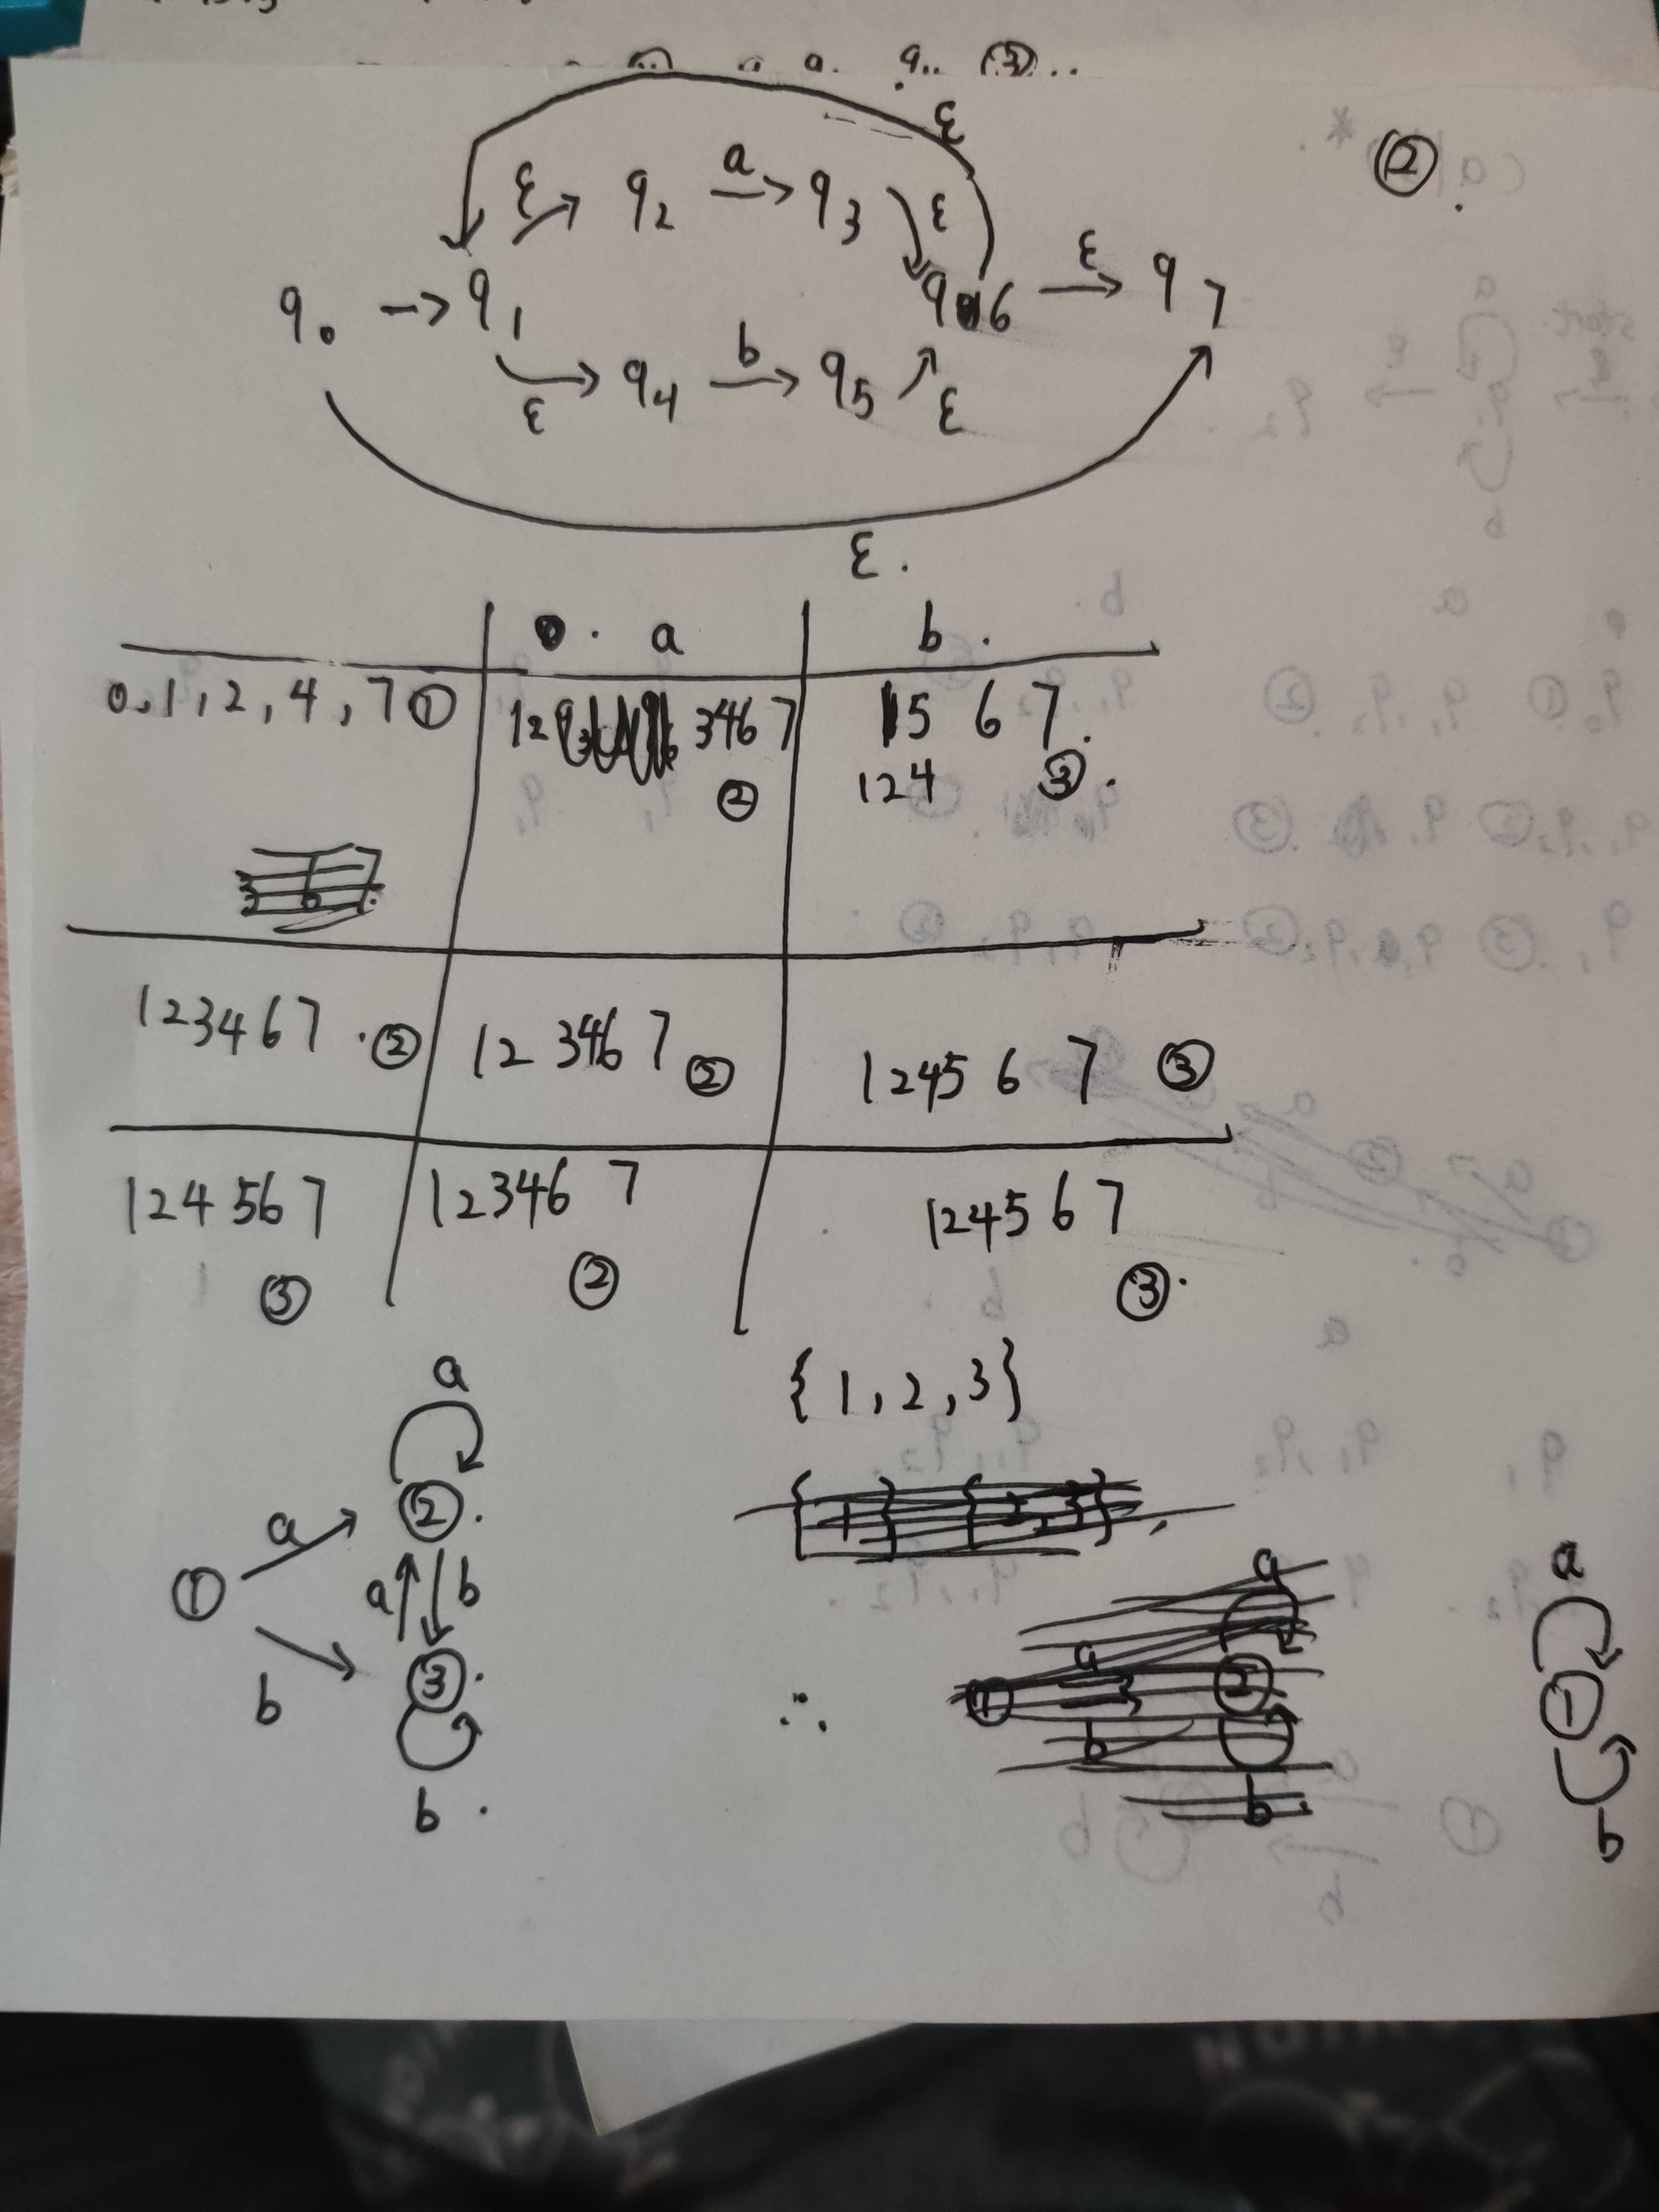 ②.
ε
ε q2 a q3 ε
q0 → q1 q6 ε q7
ε q4 b q5 ε
ε.
a b.
0,1,2,4,7 ① 12 346 7 ② 15 6 7.
124 ③.
123467.② 12 346 7 ② 1245 6 7 ③
124 567 ③ 12346 7 ② 124567 ③.
{1,2,3}
a
① a ②.
a b
b ③.
b.
∴
a
①
b